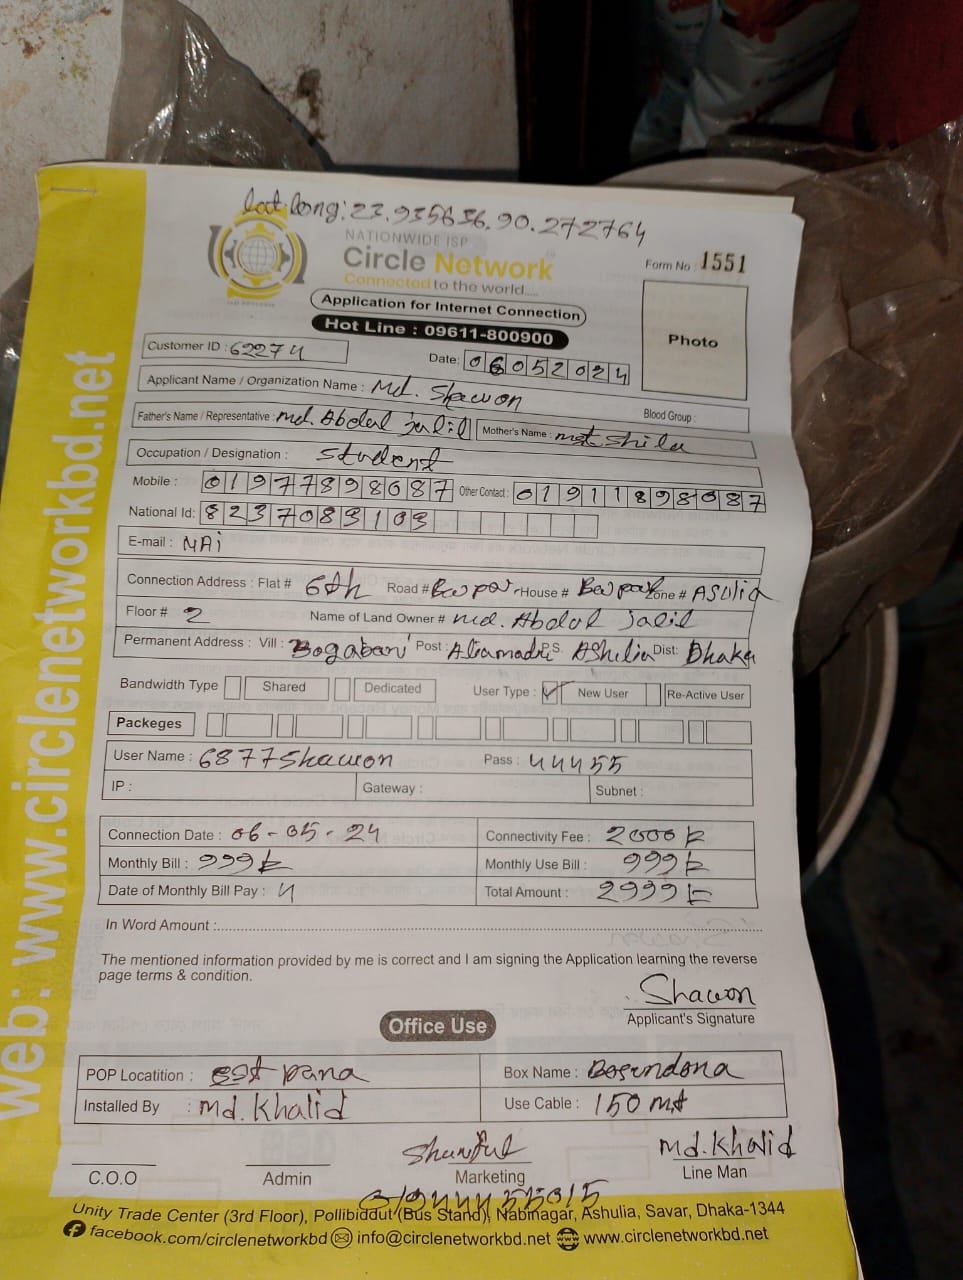 lat long: 23.935636, 90.272764
NATIONWIDE ISP
Circle Network
Connected to the world.....
Form No : 1551
Application for Internet Connection
Hot Line : 09611-800900
Photo
Customer ID : 62274
Date: 06052024
Applicant Name / Organization Name : Md. Shawon
Blood Group :
Father's Name / Representative : md. Abdal jalil Mother's Name : mst. Shila
Occupation / Designation : Student
Mobile : 01977898087 Other Contact : 01911898087
National Id: 8237083103
E-mail : NAi
Connection Address : Flat # 6th Road # House # Zone # ASulia
Floor # 2 Name of Land Owner # md. Abdal jalil
Permanent Address : Vill : Bogabari Post : P.S. AShilia Dist: Dhaka
Bandwidth Type Shared Dedicated User Type : New User Re-Active User
Packeges
User Name : 6877Shawon Pass : 44455
IP : Gateway : Subnet :
Connection Date : 06-05-24 Connectivity Fee : 2000
Monthly Bill : 999 Monthly Use Bill : 999
Date of Monthly Bill Pay : 4 Total Amount : 2999
In Word Amount :
The mentioned information provided by me is correct and I am signing the Application learning the reverse
page terms & condition.
Shawon
Applicant's Signature
Office Use
POP Locatition : pana Box Name :
Installed By : Md. Khalid Use Cable : 150 mt
Md. Khalid
C.O.O Admin Marketing Line Man
Unity Trade Center (3rd Floor), Pollibiddut (Bus Stand), Nabinagar, Ashulia, Savar, Dhaka-1344
facebook.com/circlenetworkbd info@circlenetworkbd.net www.circlenetworkbd.net
web: www.circlenetworkbd.net